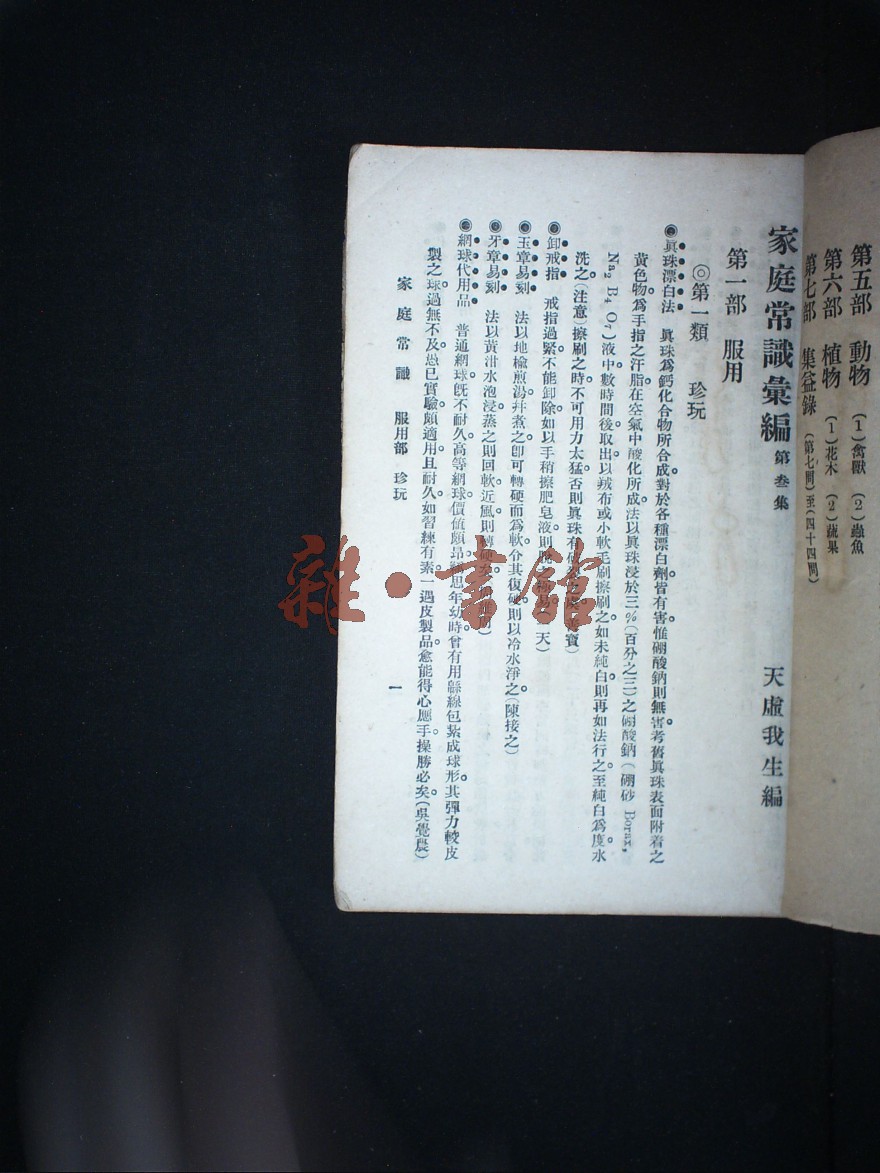 第五部　動物　（1）禽獸　（2）蟲魚
第六部　植物　（1）花木　（2）蔬果
第七部　集益錄　（第七間）至（四十四問）
家庭常識彙編　第叁集　天虛我生編
第一部　服用
◎第一類　珍玩
眞珠漂白法　眞珠爲鈣化合物所合成。對於各種漂白劑皆有害。惟硼酸鈉則無害。考舊眞珠表面附着之
黃色物。爲手指之汗脂。在空氣中酸化所成。法以眞珠浸於三％（百分之三）之硼酸鈉（硼砂 Borax,
Na₂ B₄ O₇）液中。數時間後。取出以絨布或小軟毛刷擦刷之。如未純白。則再如法行之。至純白爲度。水
洗之（注意）擦刷之時。不可用力太猛。否則眞珠有
卸戒指　戒指過緊。不能卸除。如以手稍擦肥皂液。則
玉章易刻　法以地楡煎湯幷煮之。卽可轉硬而爲軟。令其復硬。則以冷水淨之。（陳接之）
牙章易刻　法以黃泔水泡浸蒸之。則回軟。近風則
網球代用品　普通網球。旣不耐久。高等網球。價値頗昂。思年幼時。曾有用緜線包紮成球形。其彈力較皮
製之球。過無不及。愚已實驗。頗適用。且耐久。如習練有素。一遇皮製品。愈能得心應手。操勝必矣。（吳覺農）
家庭常識　服用部　珍玩　一
雜·書館